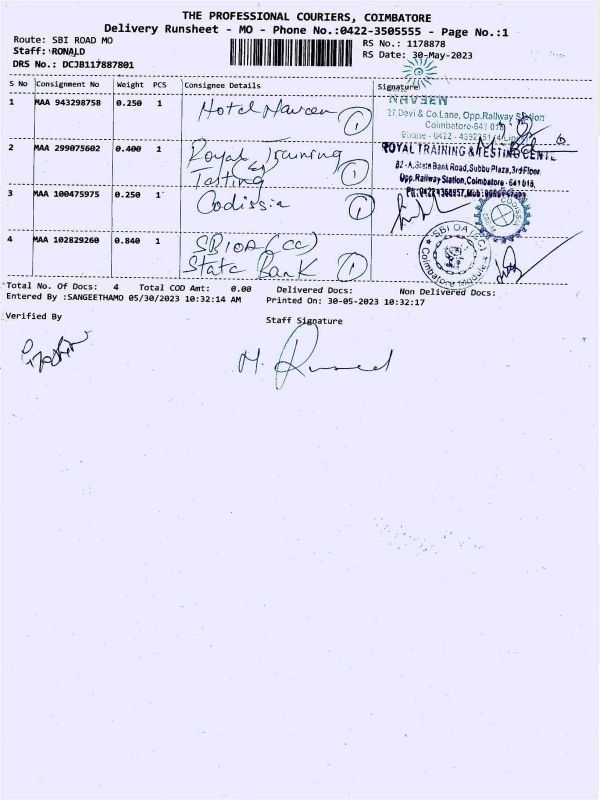 THE PROFESSIONAL COURIERS, COIMBATORE
Delivery Runsheet - MO - Phone No.:0422-3505555 - Page No.:1
Route: SBI ROAD MO
RS No.: 1178878
Staff: RONALD
RS Date: 30-May-2023
DRS No.: DCJB117887801
S No Consignment No Weight PCS Consignee Details Signature
1 MAA 943298758 0.250 1 Hotel Naveen 1
NAVEEN
27, Devi & Co. Lane, Opp. Railway Station
Coimbatore-641 018
Phone - 0422 -
2 MAA 299075602 0.400 1 Royal Training
& Testing 1
ROYAL TRAINING & TESTING CENTRE
82-A, State Bank Road, Subbu Plaza, 3rd Floor
Opp. Railway Station, Coimbatore - 641 018.
3 MAA 100475975 0.250 1 Codissia 1
CODISSIA
4 MAA 102829260 0.840 1 SBIOA (CC)
State Bank 1
SBI OA (CC)
Coimbatore Module
Total No. Of Docs: 4 Total COD Amt: 0.00 Delivered Docs: Non Delivered Docs:
Entered By :SANGEETHAMO 05/30/2023 10:32:14 AM Printed On: 30-05-2023 10:32:17
Verified By
Staff Signature